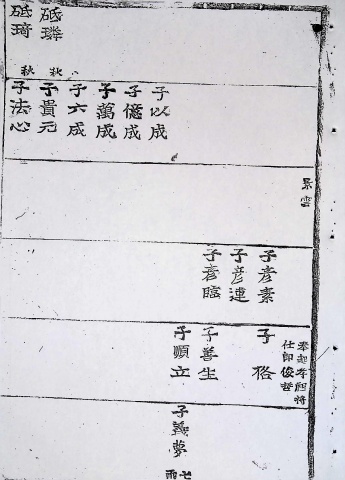 砥璘
砥琦
秋
秋
子以成
子億成
子萬成
子六成
子貴元
子法心
景雲
子彦素
子彦連
子彦臨
仕郎俊哲
子格
子善生
子順立
子義夢
七